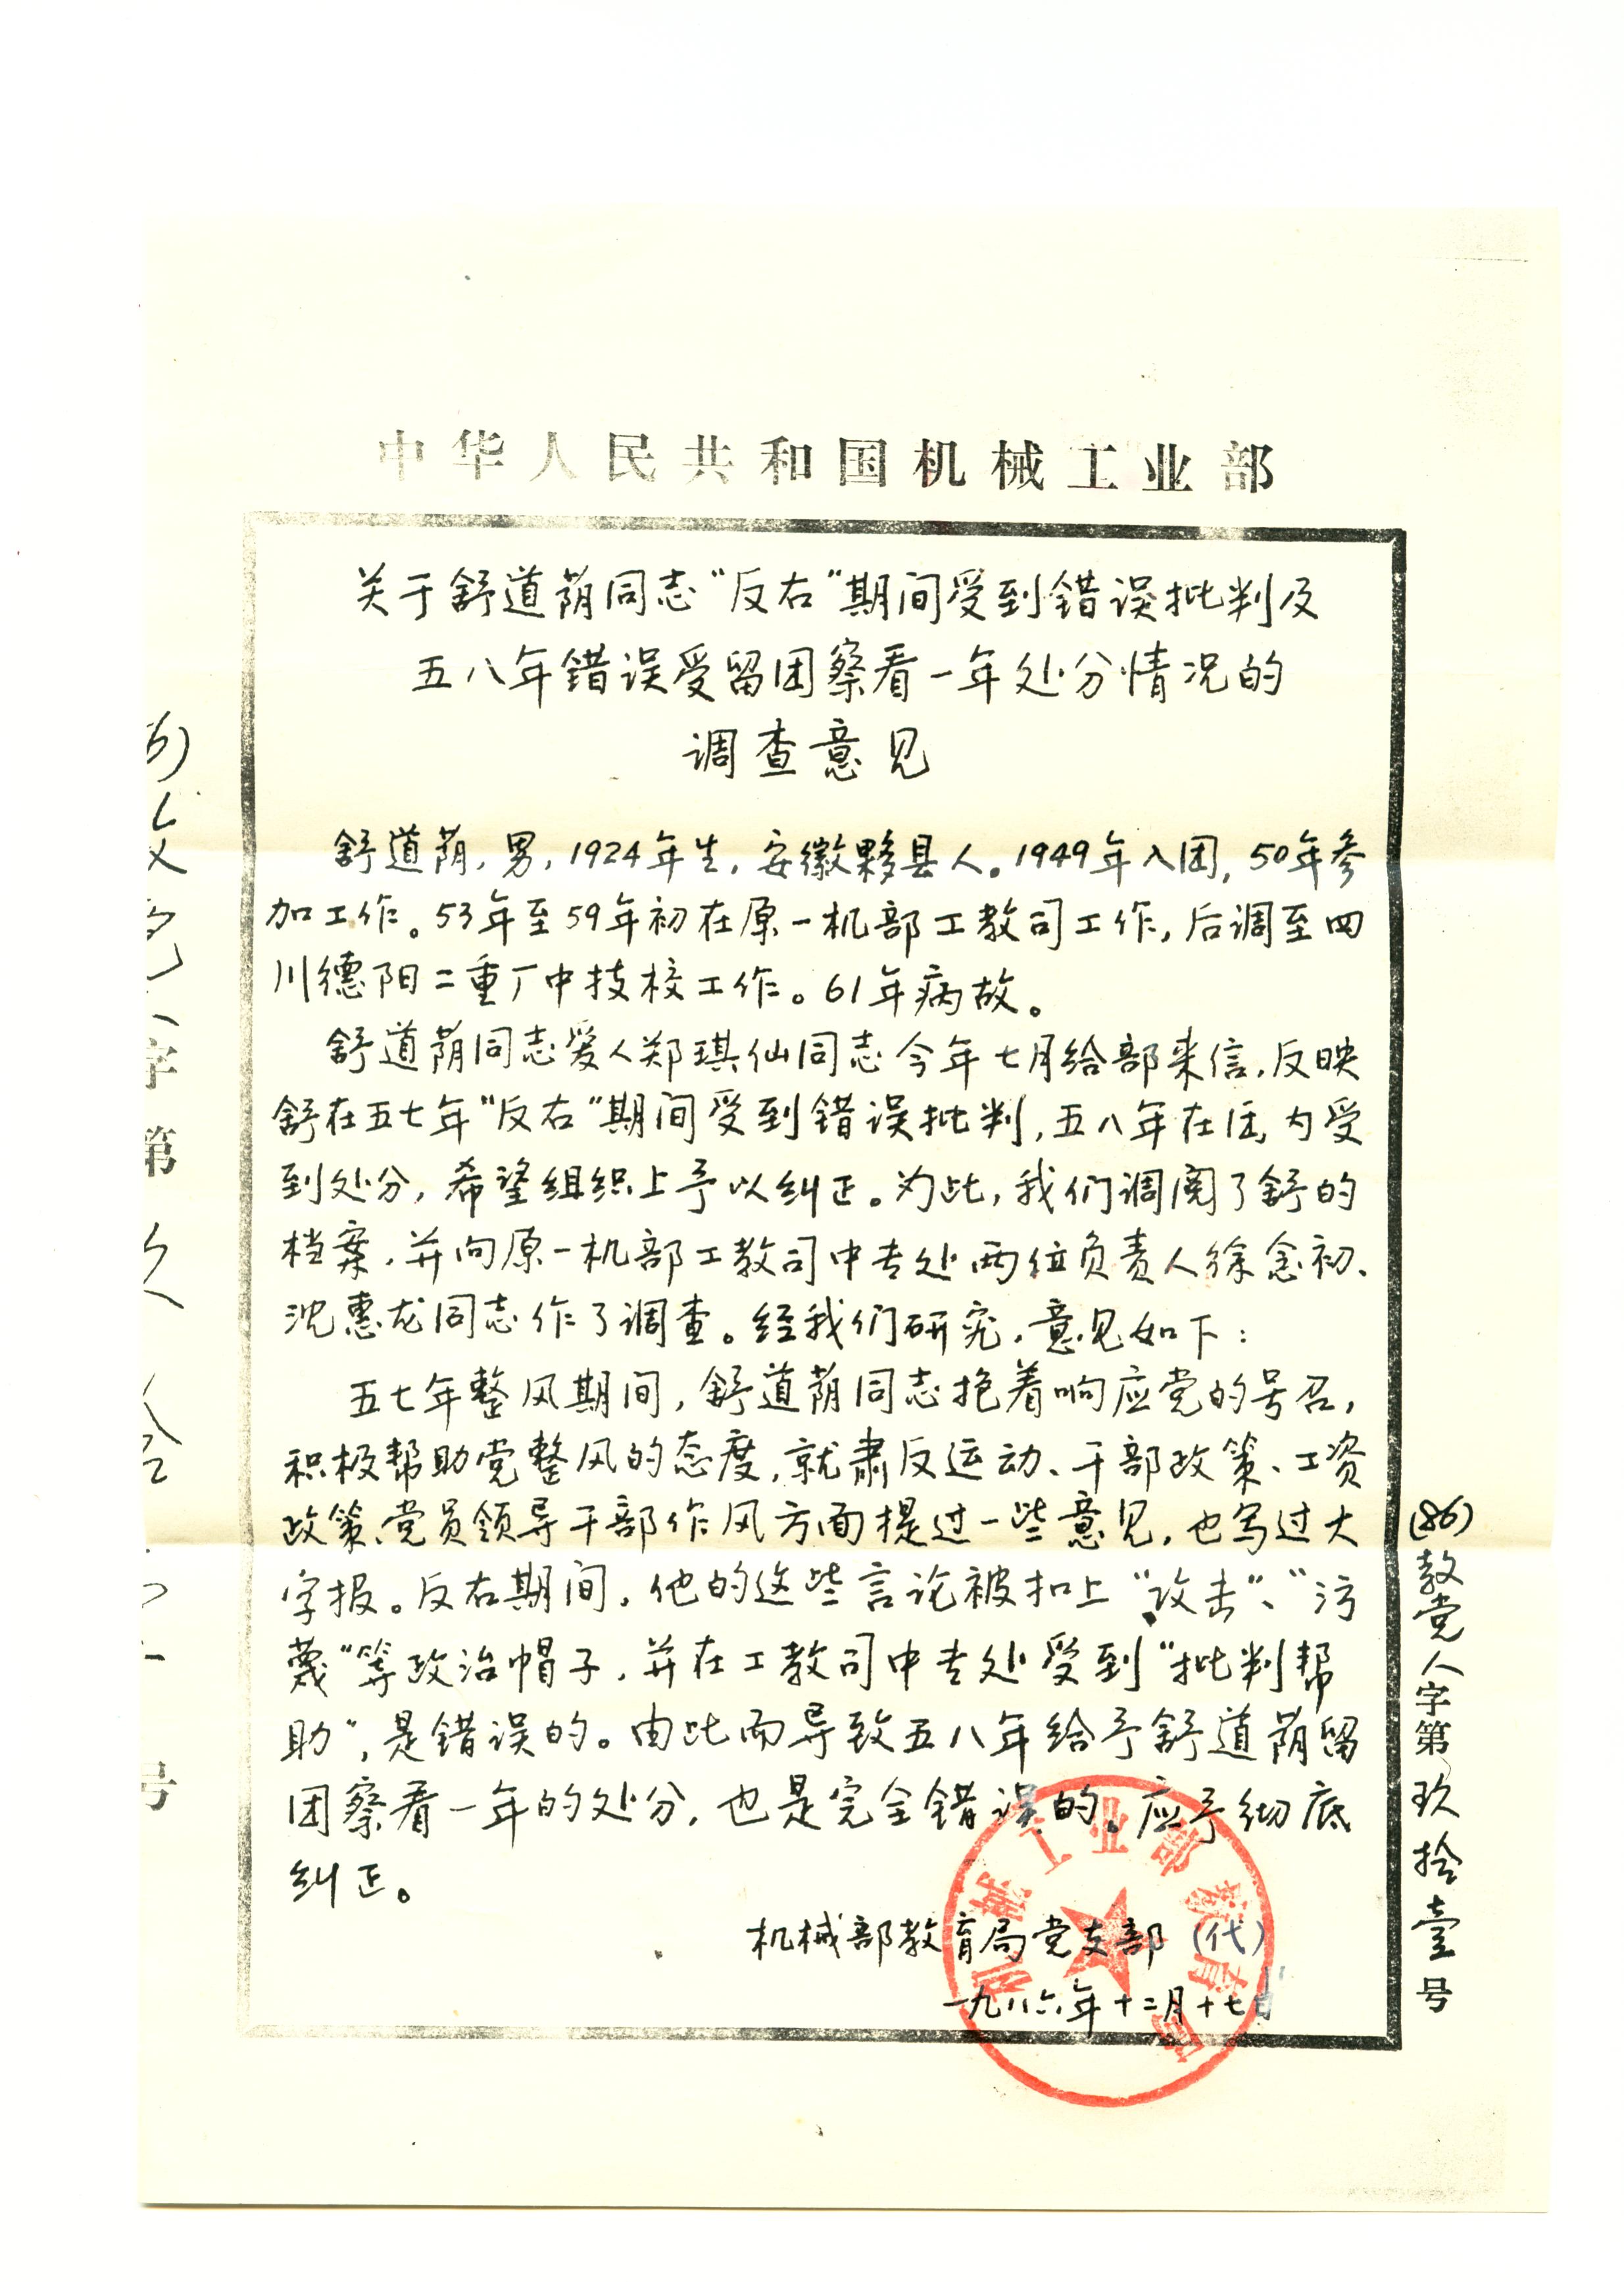 中华人民共和国机械工业部
关于舒道荫同志“反右”期间受到错误批判及
五八年错误受留团察看一年处分情况的
调查意见
舒道荫，男，1924年生，安徽黟县人。1949年入团，50年参
加工作。53年至59年初在原一机部工教司工作，后调至四
川德阳二重厂中技校工作。61年病故。
舒道荫同志爱人郑琪仙同志今年七月给部来信，反映
舒在五七年“反右”期间受到错误批判，五八年在团内受
到处分，希望组织上予以纠正。为此，我们调阅了舒的
档案，并向原一机部工教司中专处两位负责人徐念初、
沈惠龙同志作了调查。经我们研究，意见如下：
五七年整风期间，舒道荫同志抱着响应党的号召，
积极帮助党整风的态度，就肃反运动、干部政策、工资
政策、党员领导干部作风方面提过一些意见，也写过大
字报。反右期间，他的这些言论被扣上“攻击”、“污
蔑”等政治帽子，并在工教司中专处受到“批判帮
助”，是错误的。由此而导致五八年给予舒道荫留
团察看一年的处分，也是完全错误的。应予彻底
纠正。
机械部教育局党支部（代）
一九八六年十二月十七日
机械工业部教育局
(86)教党人字第玖拾壹号
字第
号